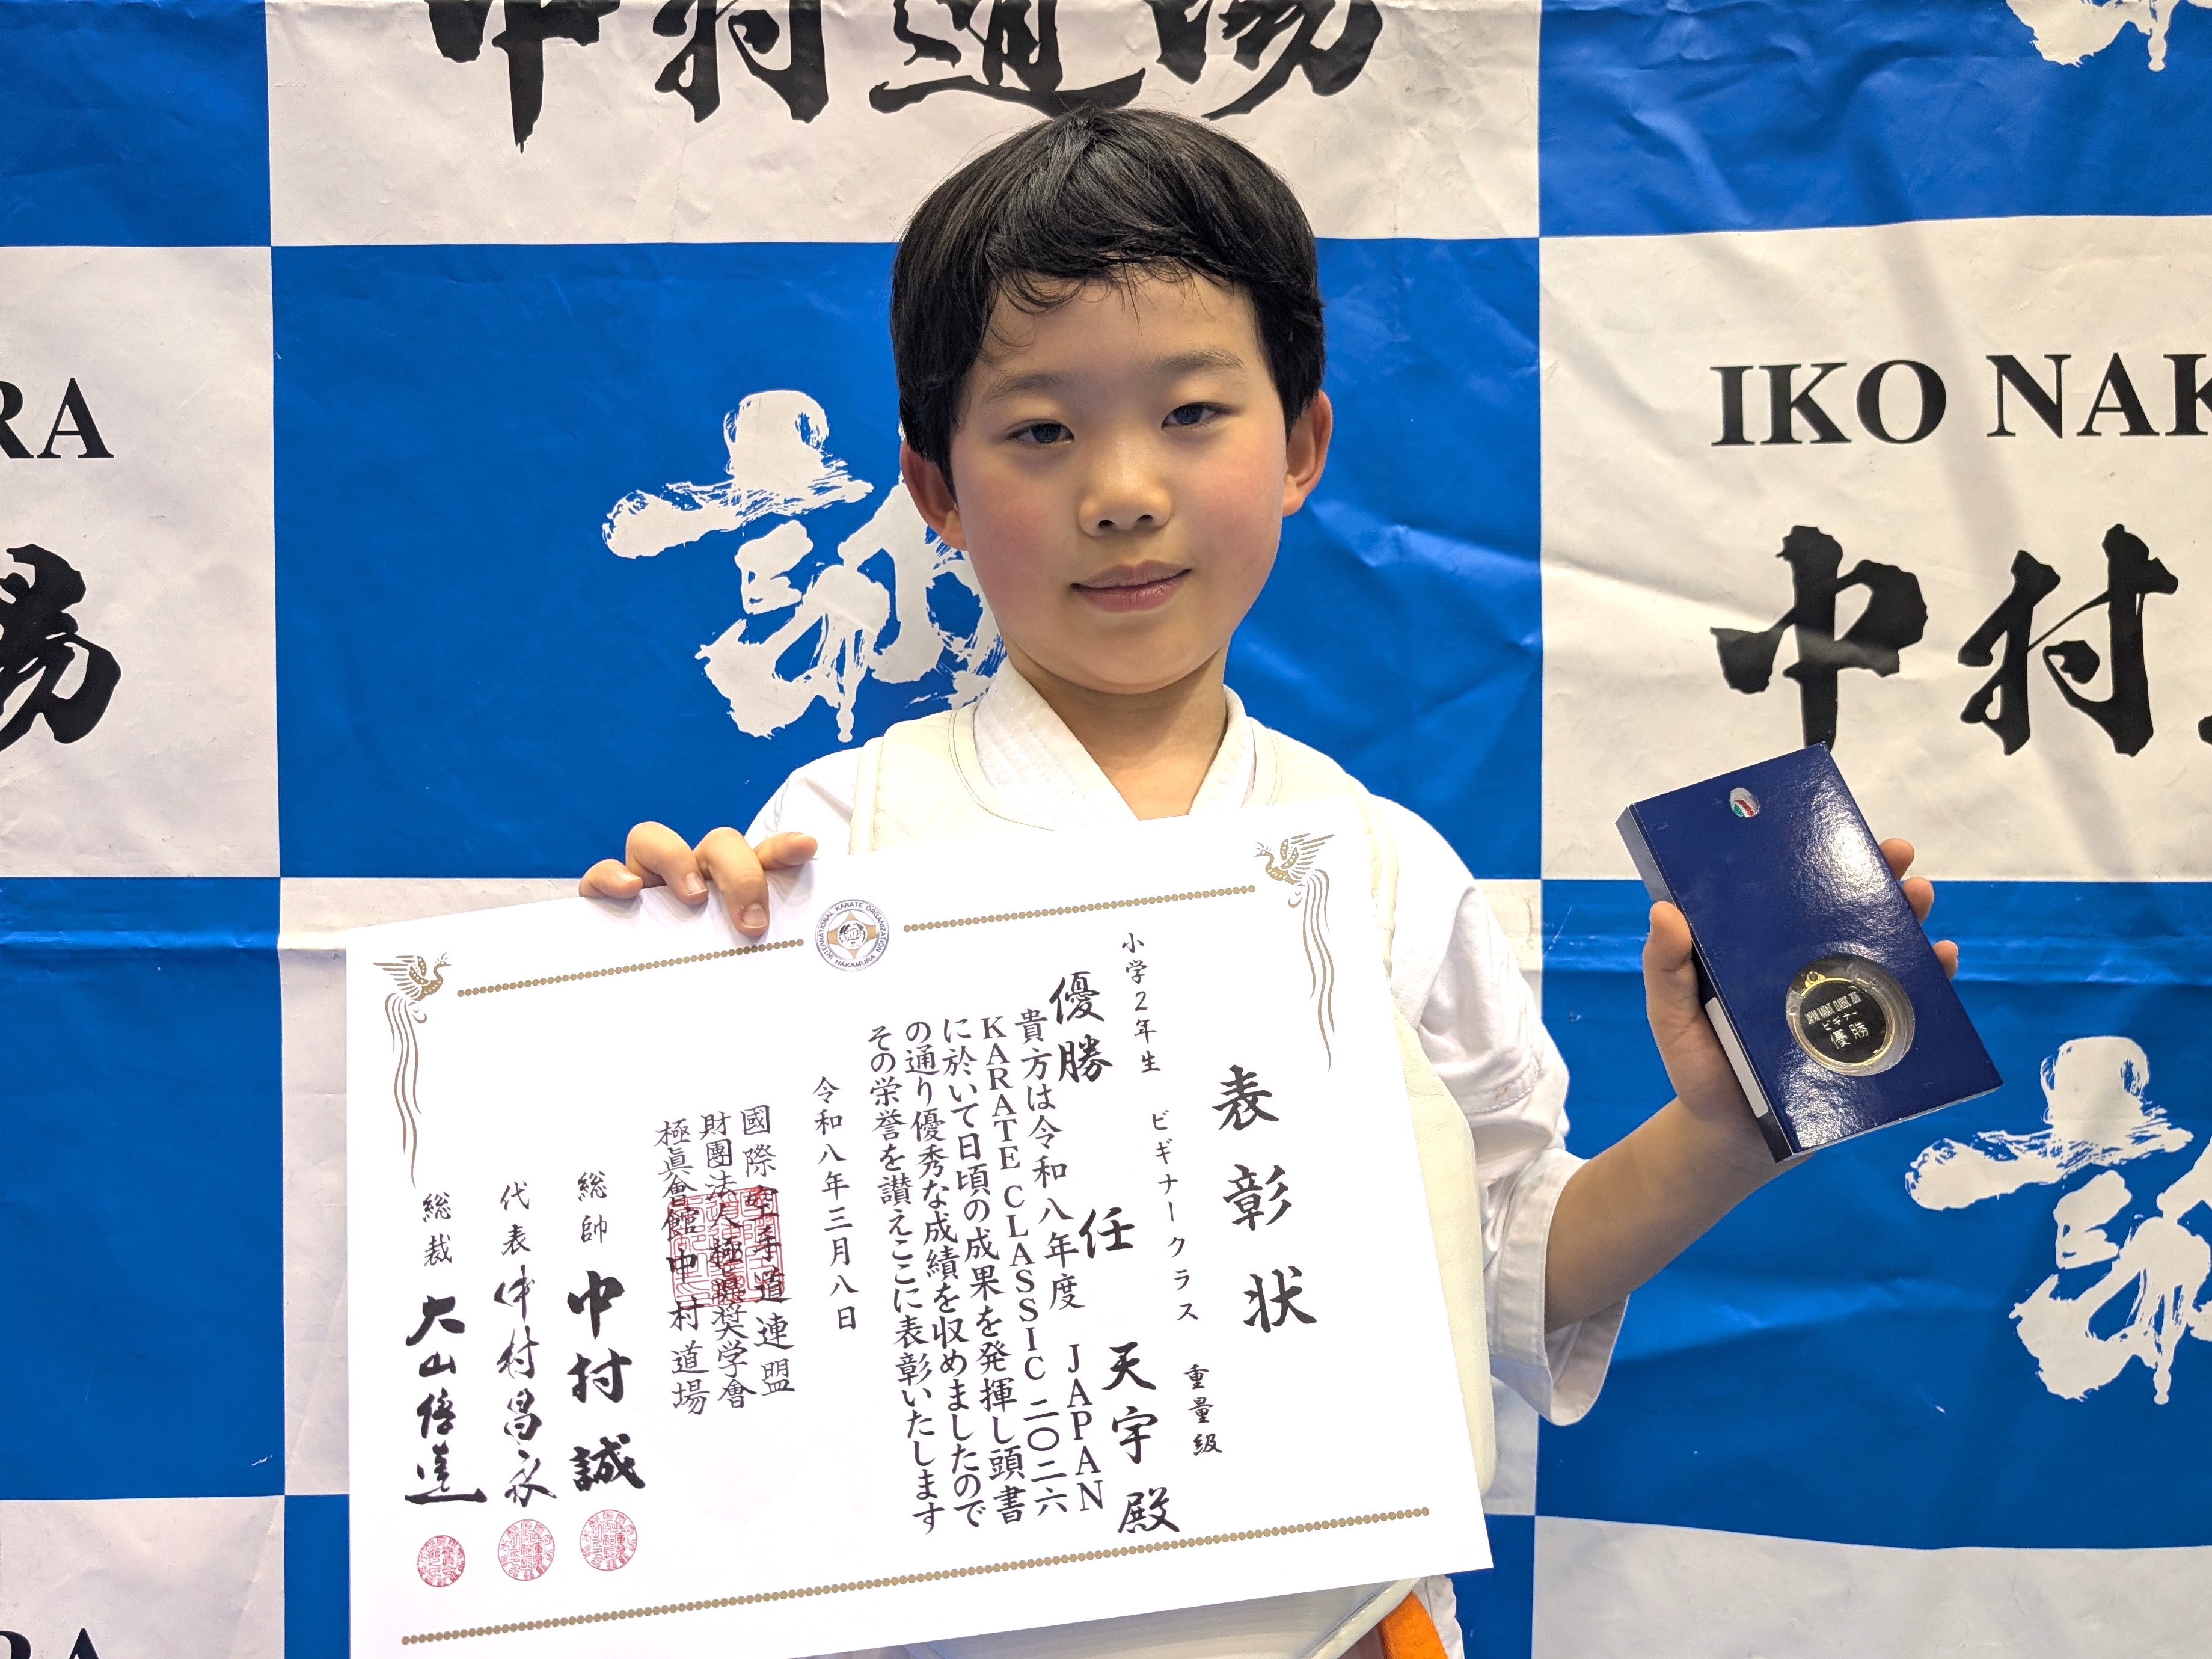 中村道場
IKO NAK
中村
RA
場
RA
誠
誠
INTERNATIONAL KARATE ORGANIZATION
NAKAMURA
表彰状
小学2年生 ビギナークラス 重量級
優勝 任 天宇 殿
貴方は令和八年度 JAPAN
KARATE CLASSIC 二〇二六
に於いて日頃の成果を発揮し頭書
の通り優秀な成績を収めましたので
その栄誉を讃えここに表彰いたします
令和八年三月八日
國際空手道連盟
財團法人極真奨学會
極眞會館中村道場
総帥 中村 誠
代表 中村昌永
総裁 大山倍達
JAPAN KARATE CLASSIC 2026
ビギナー
優勝